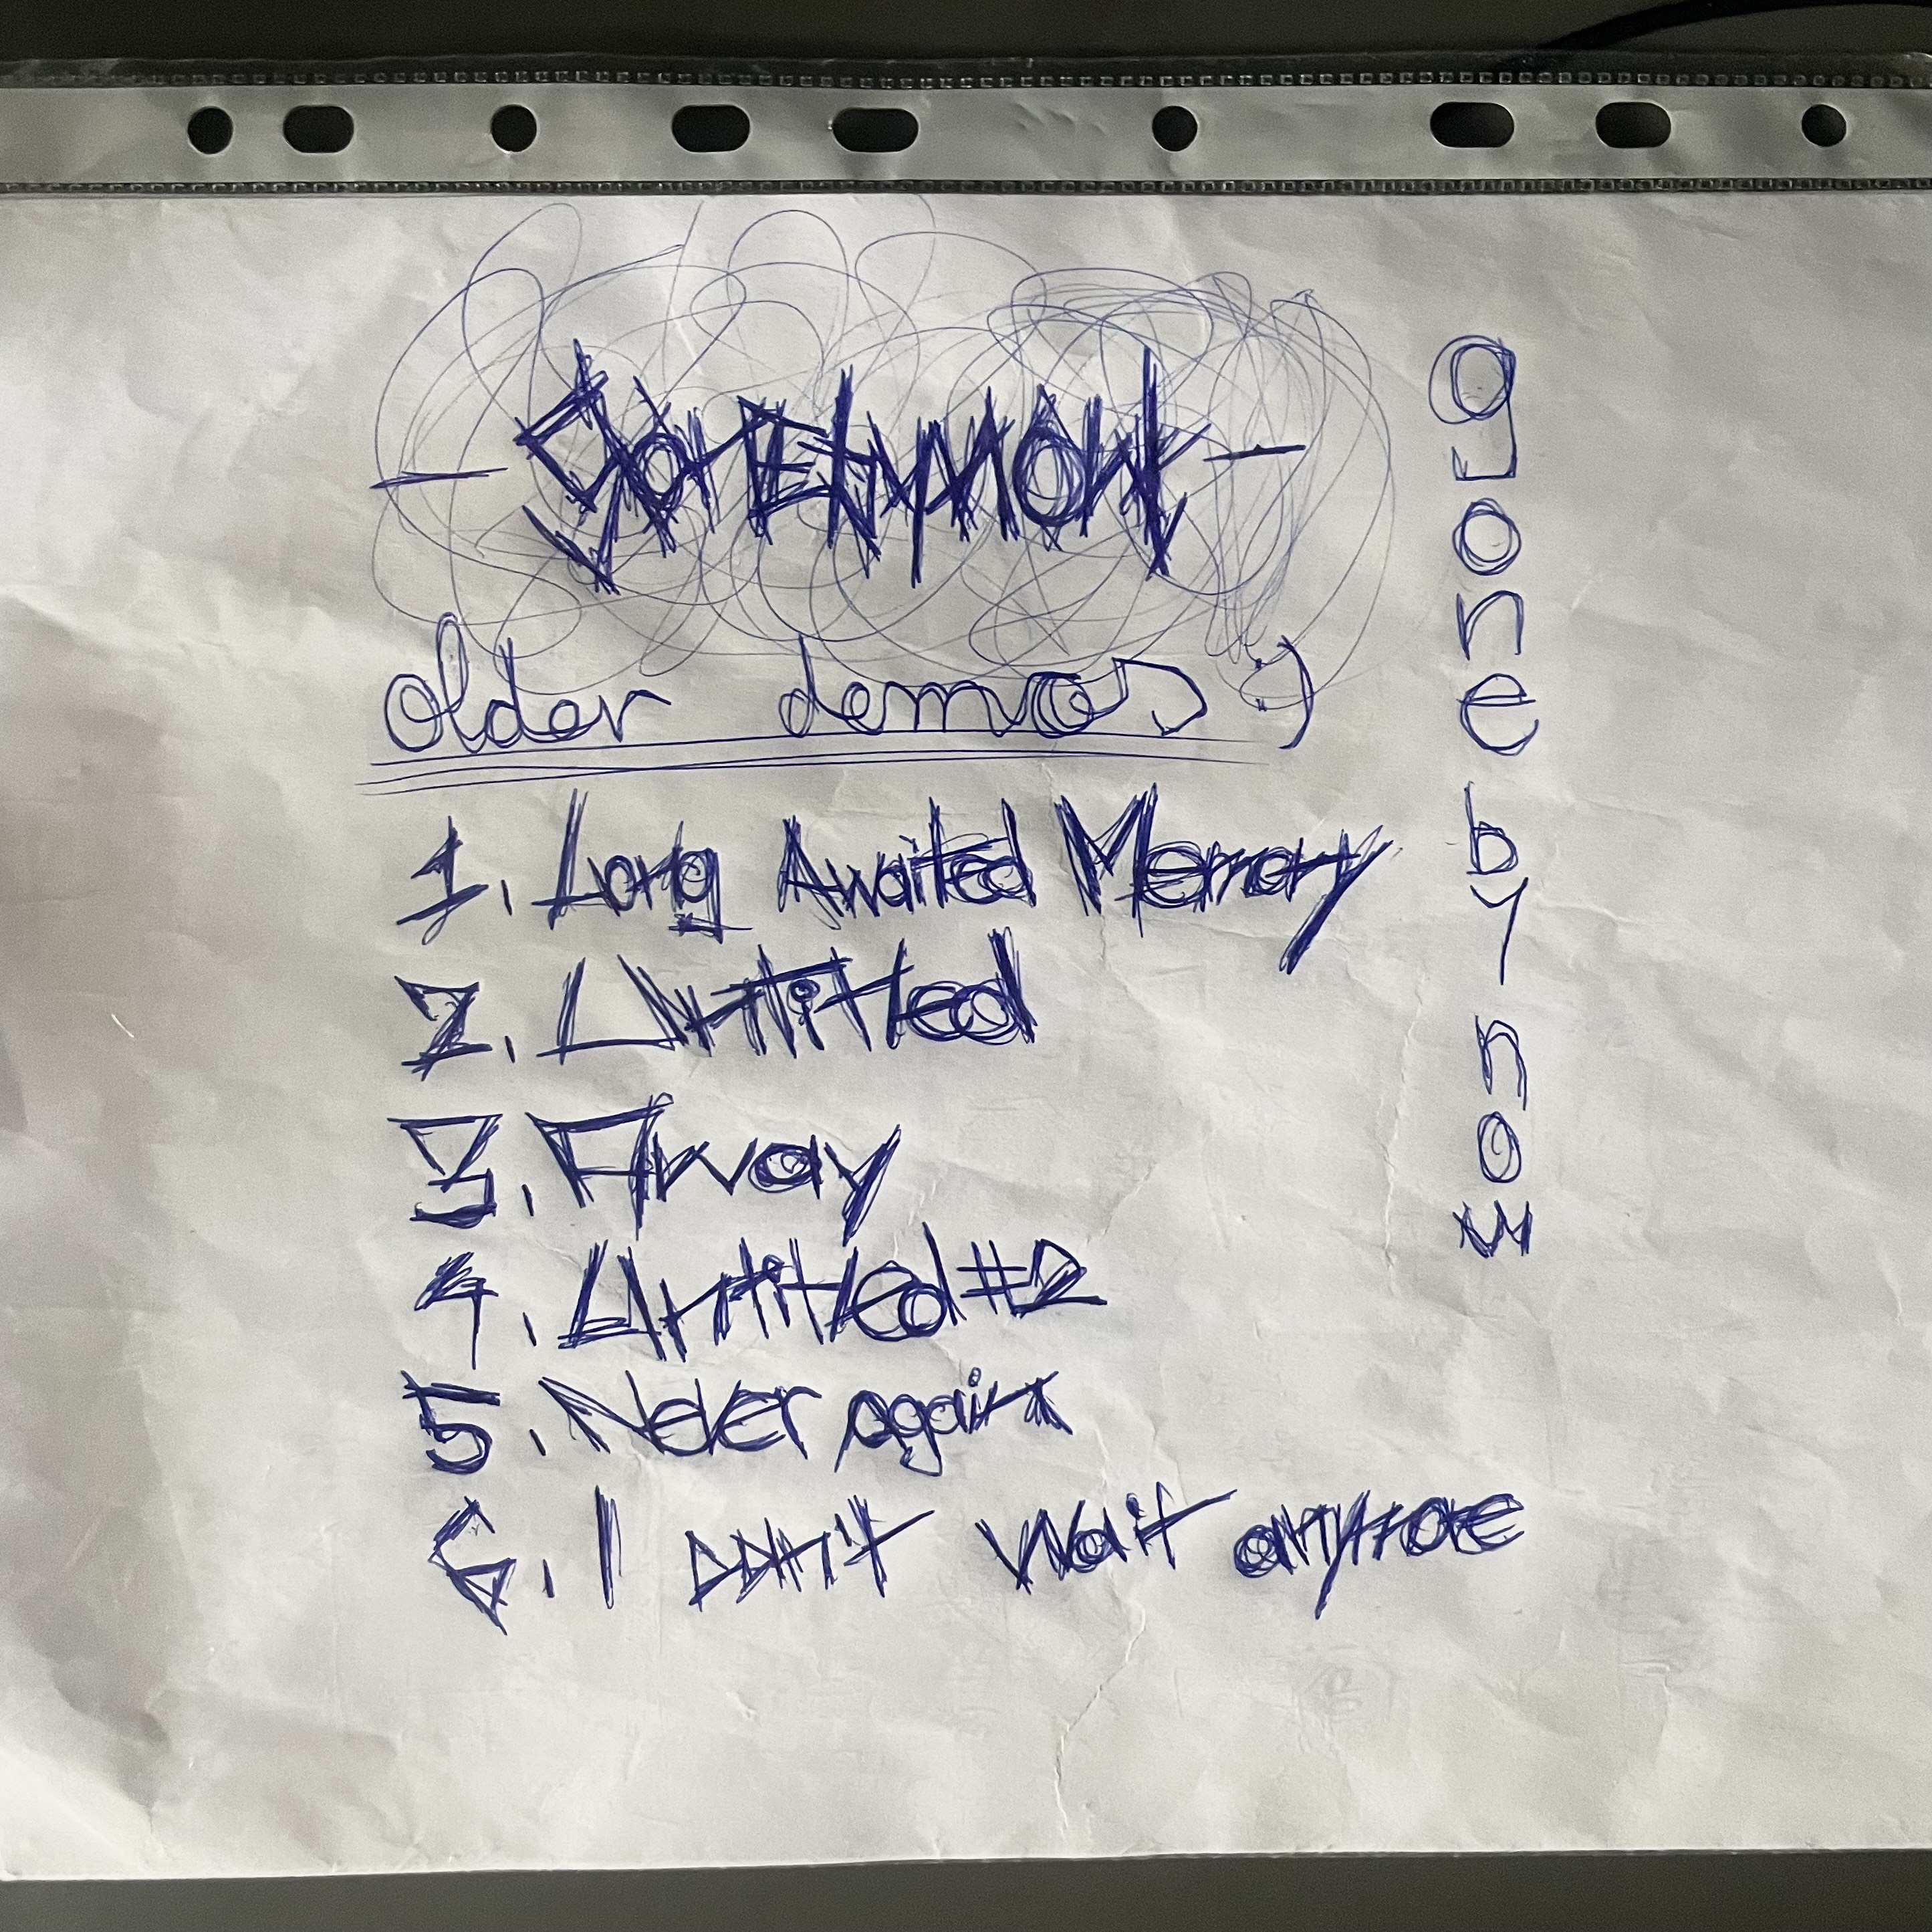 - gonEbynow -
older demos :)
1. Long Awaited Memory
2. Untitled
3. Away
4. Untitled #2
5. Never again
6. I Don't Wait anymore
gone by now